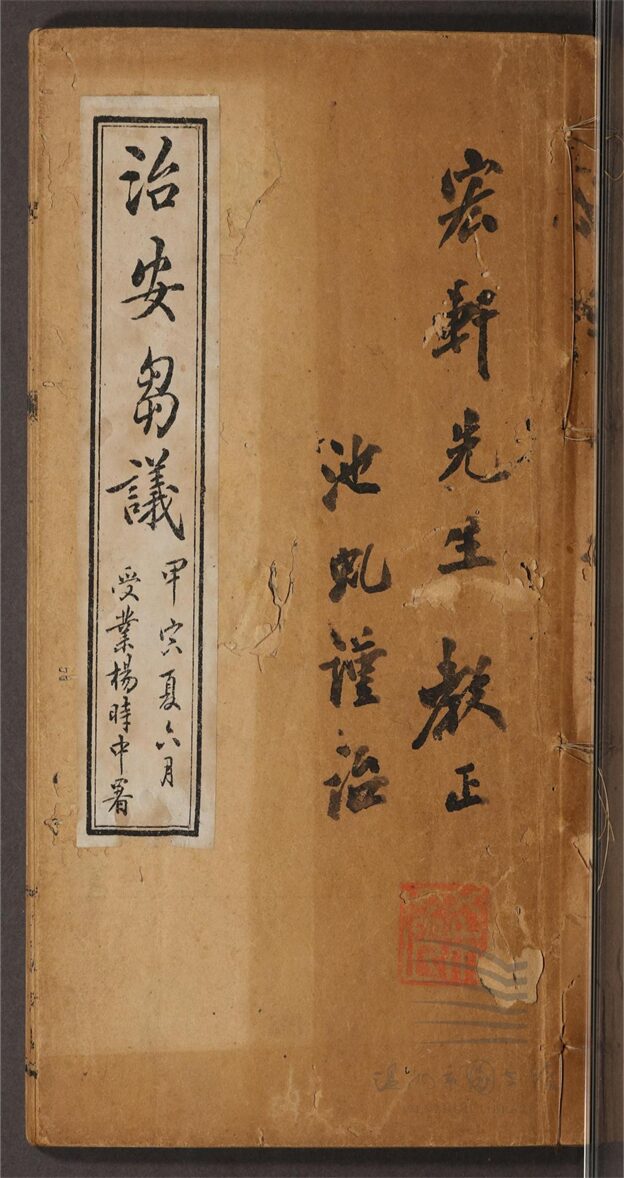 宏軒先生教正
池虬謹詒
治安芻議
甲寅夏六月
受業楊時中署